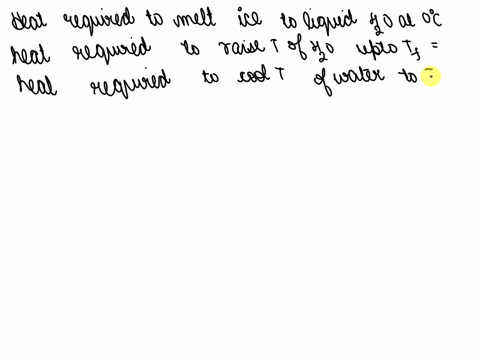 Heat required to melt ice to liquid H₂O at 0°C
heat required to raise T of H₂O upto T_f =
heat required to cool T of water to